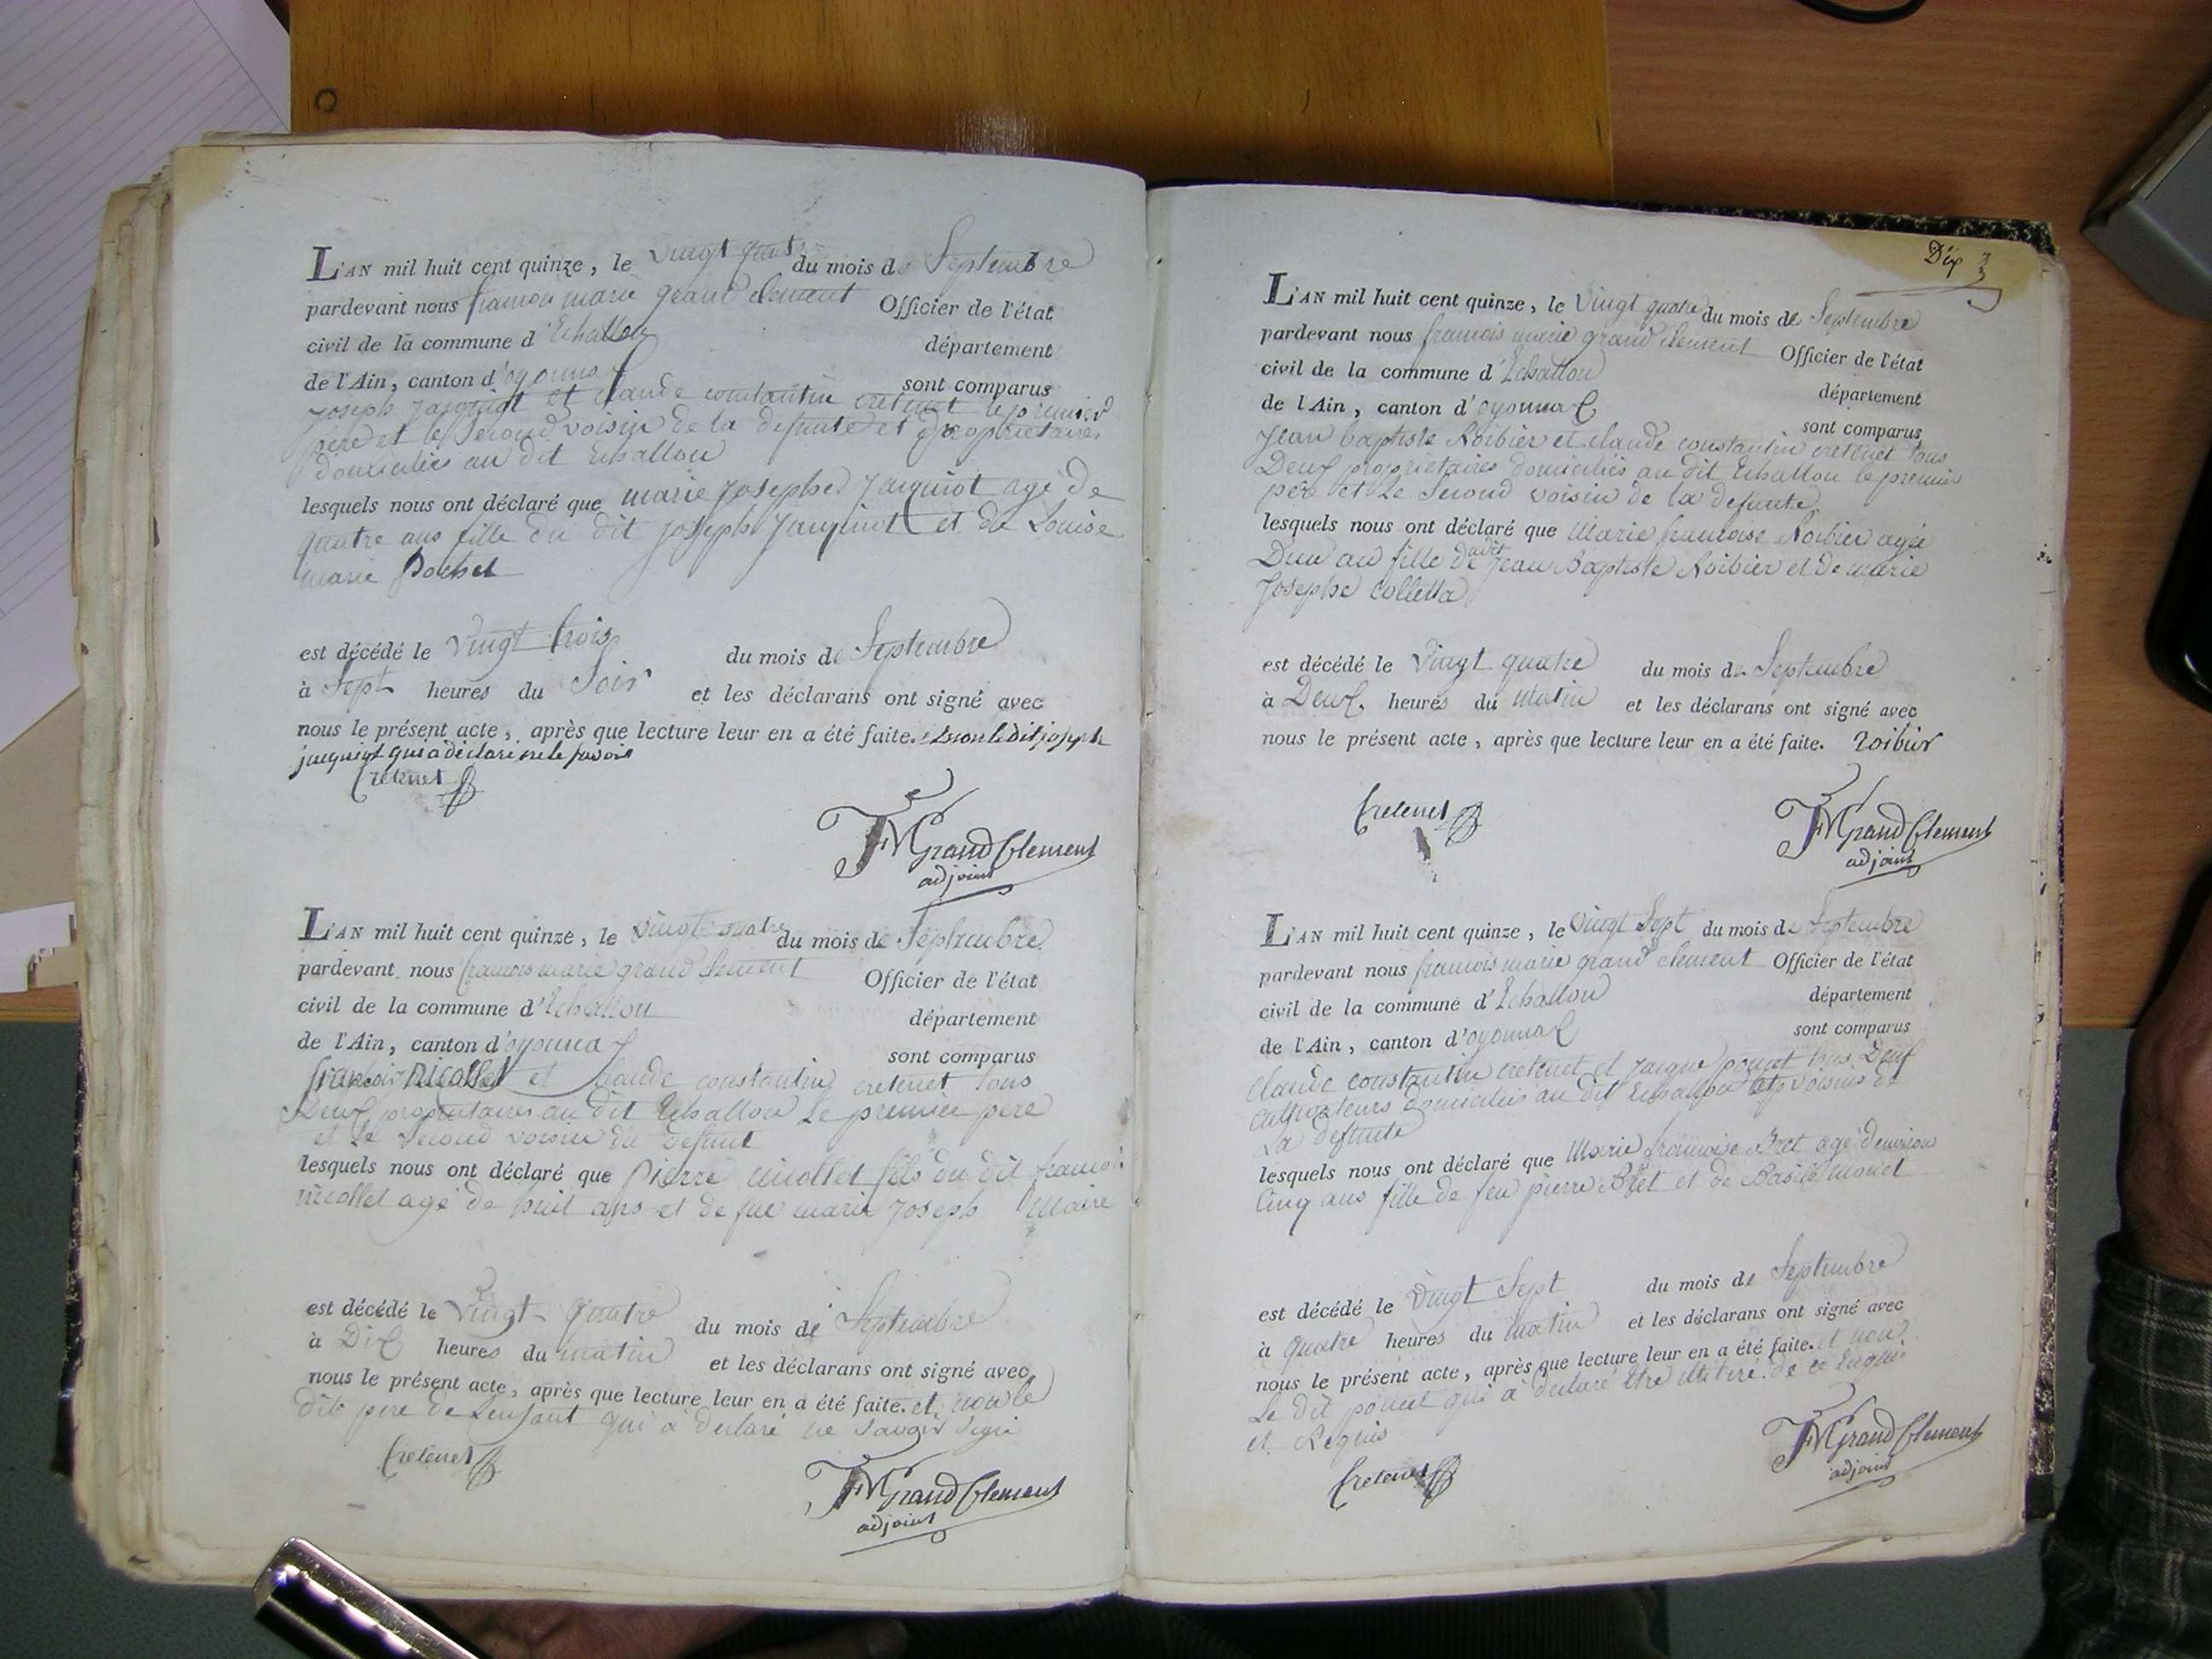 L'AN mil huit cent quinze, le vingt quatre du mois de Septembre
pardevant nous francois marie grand clement Officier de l'état
civil de la commune d'Echallon département
de l'Ain, canton d'oyonnax sont comparus
Joseph Jacquiot et claude constantin cretenet le premier
pere et le second voisin de la defunte et proprietaires
domiciliés au dit Echallon
lesquels nous ont déclaré que marie Josephe Jacquiot agé de
quatre ans fille du dit Joseph Jacquiot et de Louise
marie Pochet
est décédé le Vingt trois du mois de Septembre
à Sept heures du Soir et les déclarans ont signé avec
nous le présent acte, après que lecture leur en a été faite. sinon le dit joseph
jacquiot qui a déclaré ne le savoir
Cretenet
FM Grand Clement
adjoint
L'AN mil huit cent quinze, le vingt quatre du mois de Septembre
pardevant nous francois marie grand clement Officier de l'état
civil de la commune d'Echallon département
de l'Ain, canton d'oyonnax sont comparus
francois nicollet et claude constantin cretenet tous
Deux proprietaires au dit Echallon le premier pere
et le second voisin du defunt
lesquels nous ont déclaré que Pierre nicollet fils du dit francois
nicollet agé de huit ans et de feue marie Joseph Maire
est décédé le Vingt quatre du mois de Septembre
à Dix heures du matin et les déclarans ont signé avec
nous le présent acte, après que lecture leur en a été faite. et non le
dit pere de Lenfant qui a declaré ne savoir signé
Cretenet
FM Grand Clement
adjoint
Dép 3
L'AN mil huit cent quinze, le Vingt quatre du mois de Septembre
pardevant nous francois marie grand clement Officier de l'état
civil de la commune d'Echallon département
de l'Ain, canton d'oyonnax sont comparus
Jean baptiste Roibier et claude constantin cretenet tous
Deux proprietaires domiciliés au dit Echallon le premier
père et le second voisin de la defunte
lesquels nous ont déclaré que Marie francoise Roibier agée
Dun an fille dudit Jean Baptiste Roibier et de marie
Josephe Colletta
est décédé le Vingt quatre du mois de Septembre
à Deux heures du Matin et les déclarans ont signé avec
nous le présent acte, après que lecture leur en a été faite. roibier
Cretenet
FM Grand Clement
adjoint
L'AN mil huit cent quinze, le Vingt Sept du mois de Septembre
pardevant nous francois marie grand clement Officier de l'état
civil de la commune d'Echallon département
de l'Ain, canton d'oyonnax sont comparus
Claude constantin cretenet et Jacque poncet tous Deux
Cultivateurs domiciliés au dit Echallon et voisins de
La defunte
lesquels nous ont déclaré que Marie francoise Bret agé denviron
Cinq ans fille de feu pierre Bret et de Basile Monet
est décédé le Vingt Sept du mois de Septembre
à Quatre heures du Matin et les déclarans ont signé avec
nous le présent acte, après que lecture leur en a été faite. et non
Le dit poncet qui a declaré être illitéré de ce Enquis
et Requis
Cretenet
FM Grand Clement
adjoint